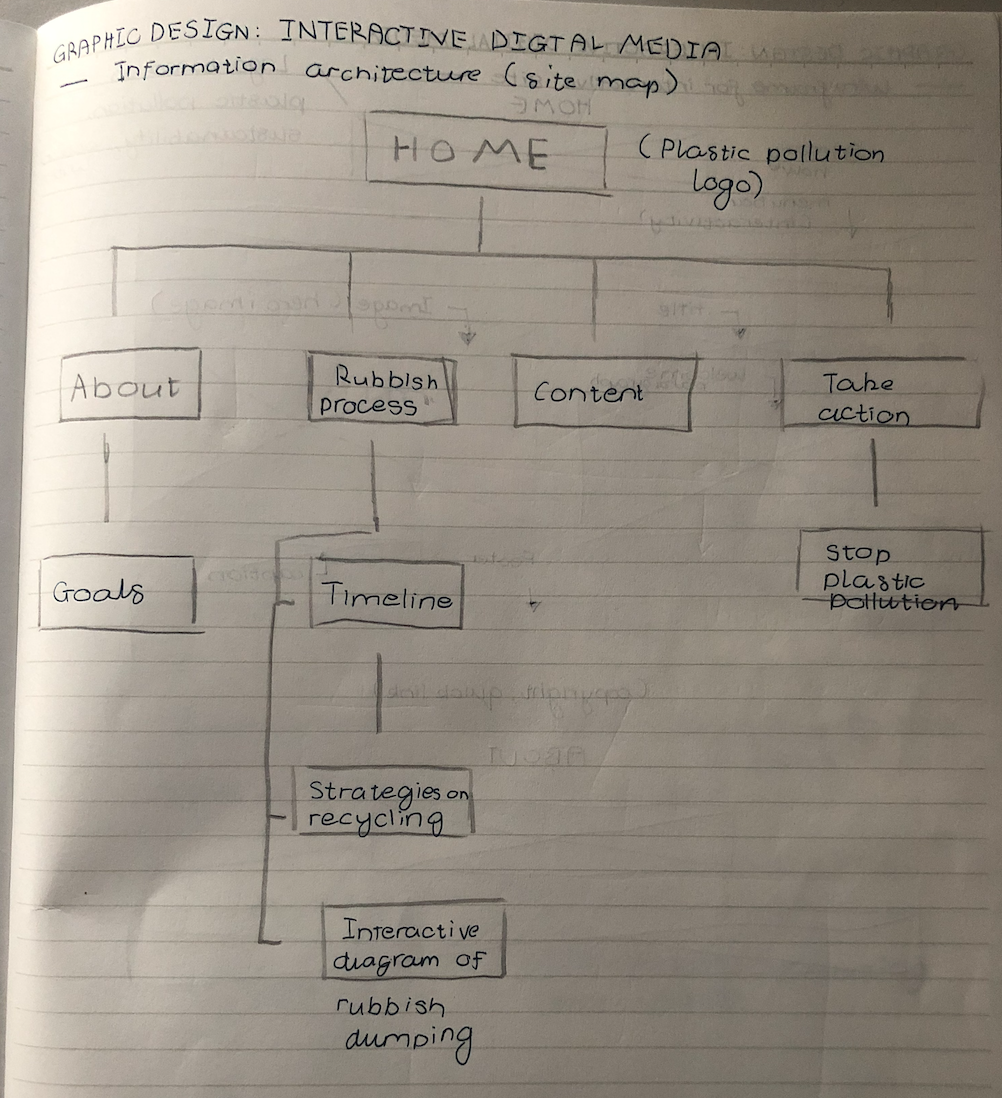 GRAPHIC DESIGN: INTERACTIVE DIGTAL MEDIA
— Information architecture (site map)
HOME
(Plastic pollution
logo)
About
Rubbish
process
Content
Take
action
Goals
Timeline
Stop
plastic
pollution
Strategies on
recycling
Interactive
diagram of
rubbish
dumping